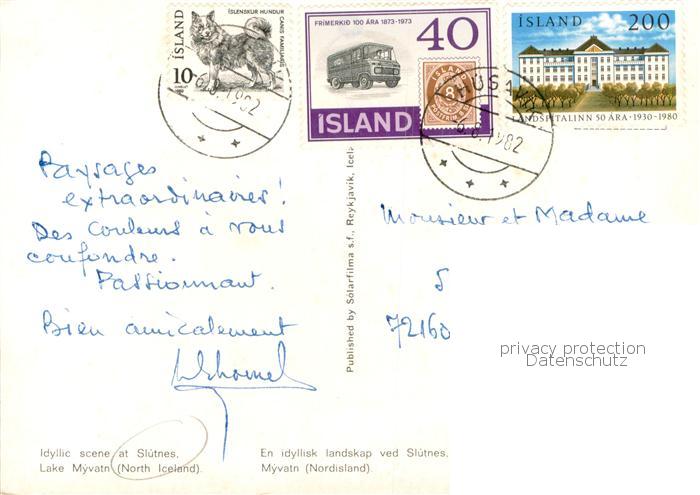 ÍSLENSKUR HUNDUR
CANIS FAMILIARIS
ÍSLAND
10
FRÍMERKIÐ 100 ÁRA 1873-1973
40
ÍSLAND
8
ÍSLAND
ÍSLAND 200
LANDSPÍTALINN 50 ÁRA · 1930-1980
6.8.1982
HÚSAVÍK
6.8.1982
Paysages
extraordinaires !
Des couleurs à vous
confondre.
Passionnant.
Bien amicalement
Published by Sólarfilma s.f., Reykjavik, Icel
Monsieur et Madame
72160
privacy protection
Datenschutz
Idyllic scene at Slútnes,
Lake Mývatn (North Iceland).
En idyllisk landskap ved Slútnes,
Mývatn (Nordisland).